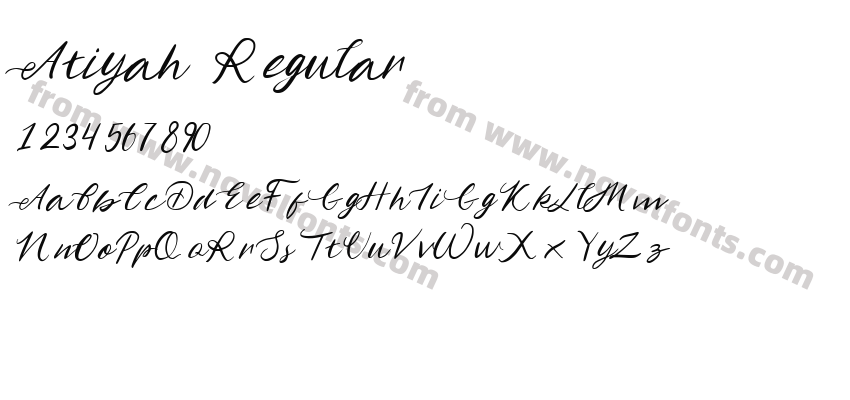 Atiyah Regular
1234567890
AaBbCcDdEeFfGgHhIiGgKkLlMm
NnOoPpQaRrSsTtUuVvWwXxYyZz
from www.novelfonts.com
from www.novelfonts.com